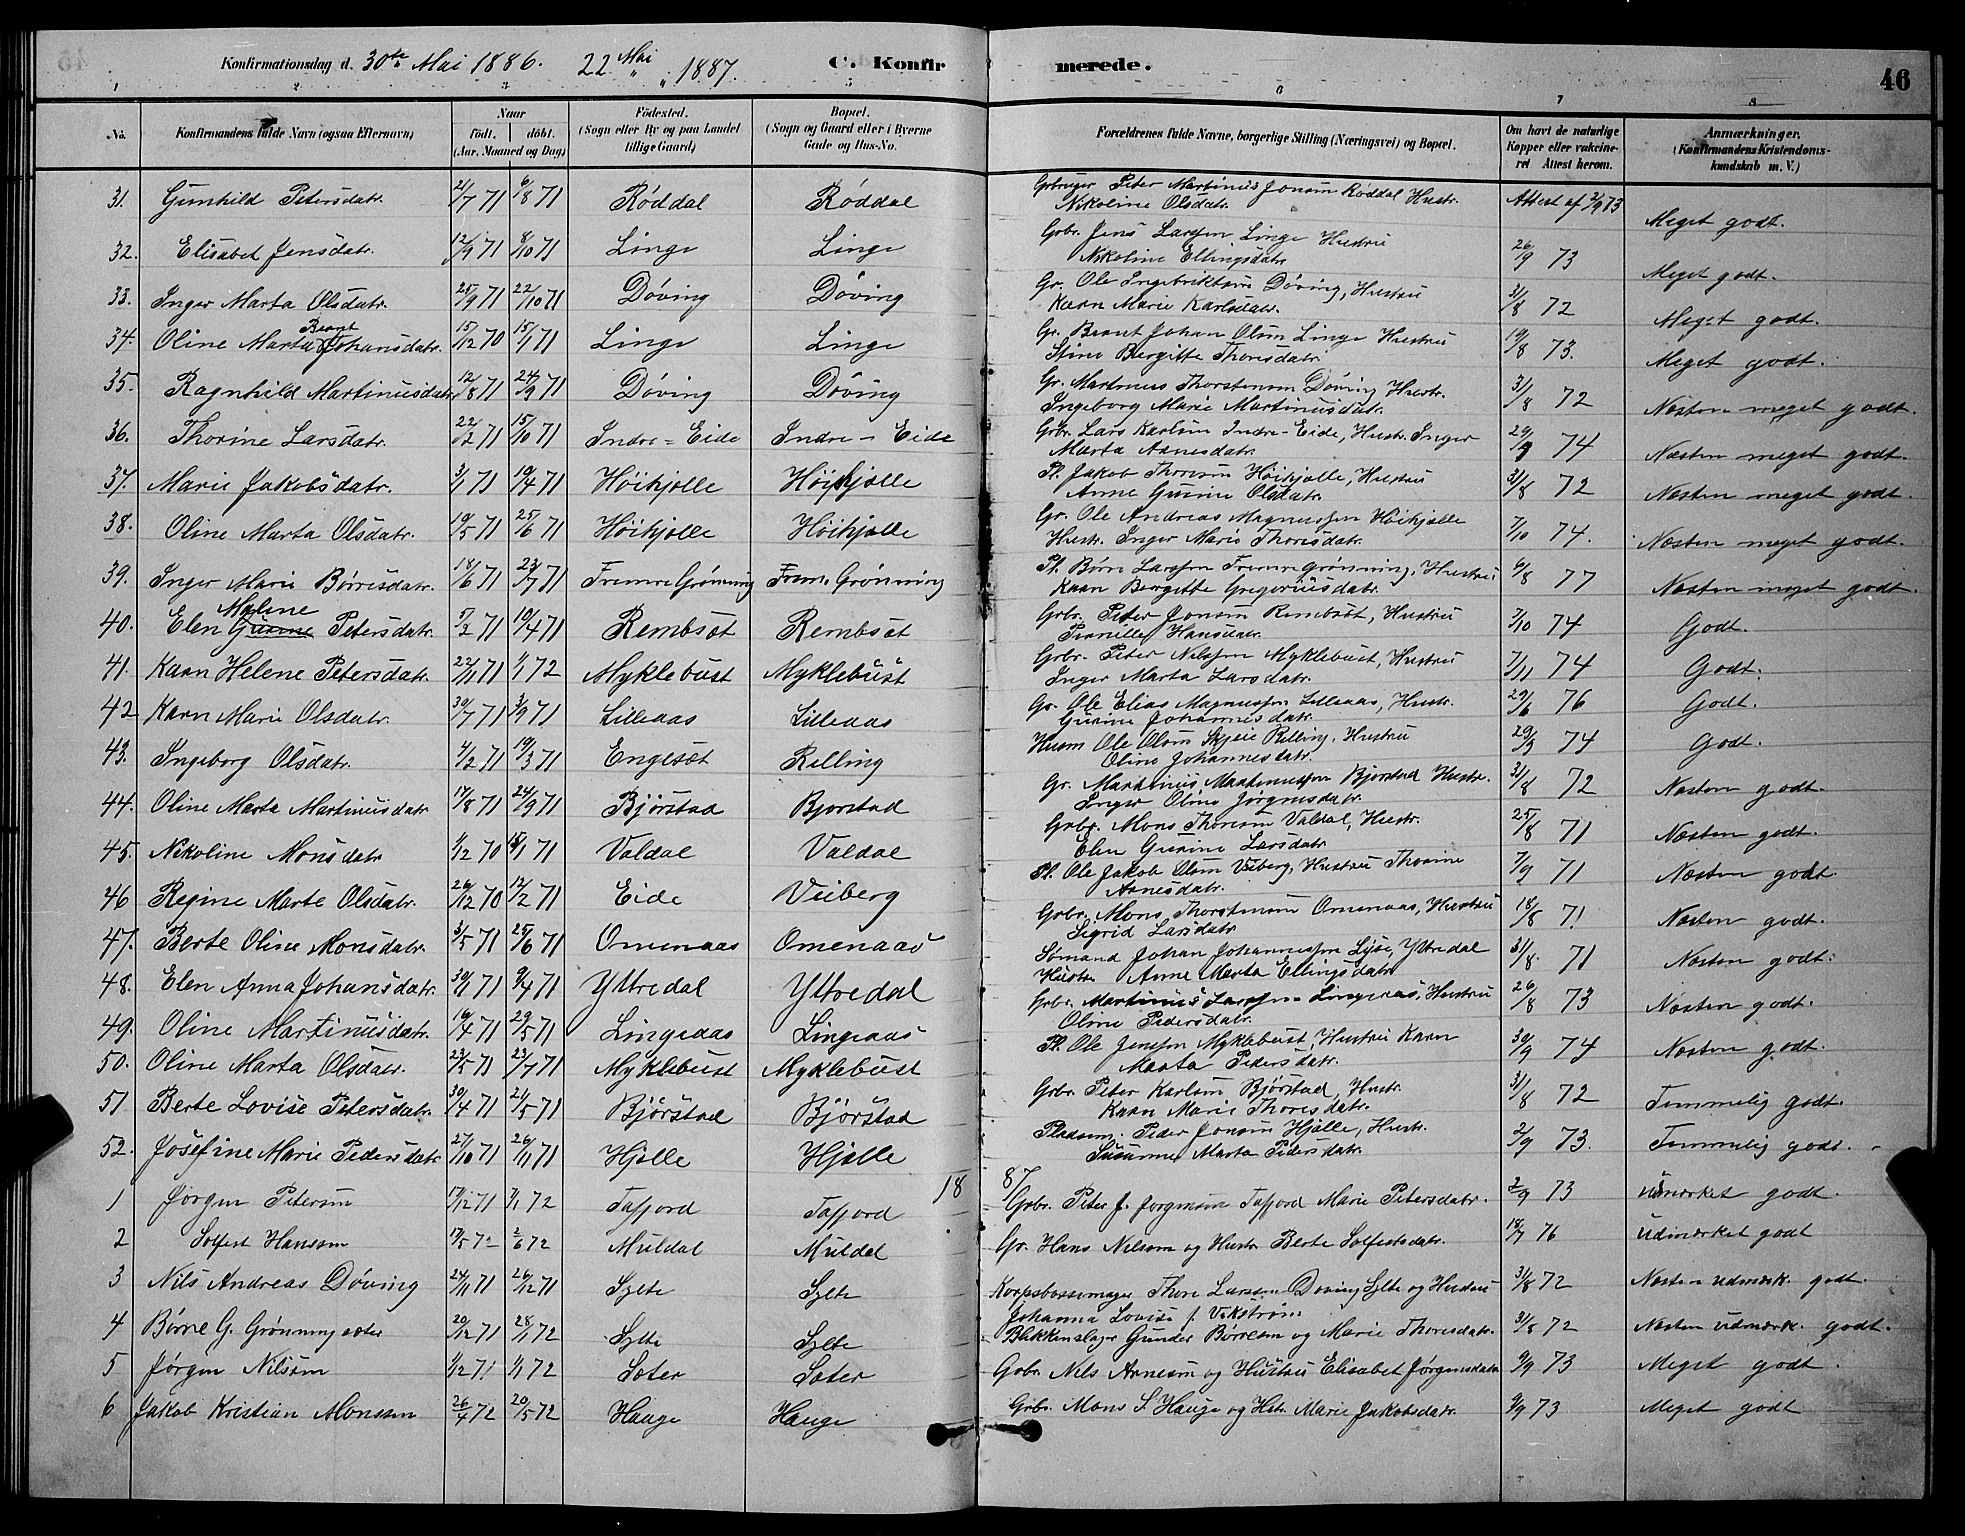 Konfirmationsdag d. 30te Mai 1886. 22 Mai 1887. C. Konfirmerede. 46
1 2 3 5 6 7 8
No. Konfirmandens fulde Navn (ogsaa Efternavn) Naar født. døbt. (Aar, Maaned og Dag) Fødested. (Sogn eller By og paa Landet tillige Gaard) Bopæl. (Sogn og Gaard eller i Byerne Gade og Hus-No. Forældrenes fulde Navne, borgerlige Stilling (Næringsvei) og Bopæl. Om havt de naturlige Kopper eller vakcineret Attest herom. Anmærkninger. (Konfirmandens Kristendomskundskab m. V.)
31. Gunhild Petersdatr. 21/7 71 6/8 71 Røddal Røddal Grbruger Peter Martinus Jonsen Røddal Hustr. Nikoline Olsdatr. Attest af 2/9 73 Meget godt.
32. Elisabet Jensdatr. 12/9 71 8/10 71 Linge Linge Grbr. Jens Larssen Linge Hustru Nikoline Ellingsdatr. 26/9 73 Meget godt.
33. Inger Marta Olsdatr. 25/9 71 22/10 71 Døving Døving Gr. Ole Ingebriktsen Døving, Hustru Karn Marie Karlsdatr. 31/8 72 Meget godt.
34. Oline Marta Brant Johansdatr. 15/12 70 15/1 71 Linge Linge Gr. Brant Johan Olsen Linge Hustru Stine Bergitte Thoresdatr. 19/8 73. Meget godt.
35. Ragnhild Martinusdatr. 12/8 71 24/9 71 Døving Døving Gr. Martinus Thorstensen Døving Hustr. Ingeborg Marie Martinusdatr. 31/8 72 Næsten meget godt.
36. Thorine Larsdatr. 22/2 71 15/10 71 Indre-Eide Indre-Eide Grbr. Lars Karlsen Indre-Eide, Hustr. Inger Marta Arnesdatr. 29/9 74 Næsten meget godt.
37. Marie Jakobsdatr. 3/1 71 10/4 71 Høihjelle Høihjelle Pl. Jakob Thoresen Høihjelle, Hustru Anne Gurine Olsdatr. 31/8 72 Næsten meget godt.
38. Oline Marta Olsdatr. 19/5 71 25/6 71 Høihjelle Høihjelle Gr. Ole Andreas Magnussen Høihjelle Hustr. Inger Marie Thoresdatr. 7/10 74. Næsten meget godt.
39. Inger Marie Børresdatr. 18/6 71 23/7 71 Fremre Grønning Frem. Grønning Pl. Børre Larssen Fremre Grønning, Hustru Karn Bergitte Gregoriusdatr. 6/8 77 Næsten meget godt.
40. Elen Malene Gurine Petersdatr. 5/2 71 10/4 71 Rembsæt Rembsæt Grbr. Peter Jonsen Rembsæt, Hustru Pernille Hansdatr. 7/10 74 Godt.
41. Karn Helene Petersdatr. 22/11 71 1/1 72 Myklebust Myklebust Grbr. Peter Nilssen Myklebust, Hustru Inger Marta Larsdatr. 7/11 74 Godt.
42 Karn Marie Olsdatr. 30/7 71 3/9 71 Lilleaas Lilleaas Gr. Ole Elias Magnussen Lilleaas, Hustr. Gurine Johannesdatr. 29/6 76 Godt.
43. Ingeborg Olsdatr. 4/2 71 19/3 71 Engesæt Relling Husm Ole Olsen Skjeie Relling, Hustru Oline Johannesdatr. 29/9 74 Godt.
44. Oline Marta Martinusdatr. 14/8 71 24/9 71 Bjørstad Bjorstad Gr. Martinus Martinussen Bjorstad Hustr. Inger Oline Jørgensdatr. 31/8 72 Næsten godt.
45. Nikoline Monsdatr 4/12 70 15/1 71 Valdal Valdal Grbr. Mons Thoresen Valdal, Hustr. Elen Gurine Larsdatr. 25/8 71 Næsten godt.
46 Regine Marte Olsdatr. 26/12 70 12/2 71 Eide Veiberg Pl. Ole Jakob Olsen Veiberg, Hustru Thorine Arnesdatr. 7/9 71 Næsten godt.
47. Berte Oline Monsdatr. 3/5 71 25/6 71 Omenaas Omenaas Grbr. Mons Thorstensen Omenaas, Hustru Sigrid Larsdatr. 18/8 71 Næsten godt.
48. Elen Anna Johansdatr. 30/1 71 9/4 71 Yttredal Yttredal Sømand Johan Johannessen Lyse, Yttredal Hustr. Anne Marta Ellingsdatr 31/8. 71 Næsten godt.
49. Oline Martinusdatr. 16/4 71 29/5 71 Lingeaas Lingeaas Grbr. Martinus Larssen Lingeaas, Hustru Oline Pedersdatr. 26/8 73 Næsten godt.
50. Oline Marta Olsdatr. 23/5 71 23/7 71 Myklebust Myklebust Pl. Ole Jenssen Myklebust, Hustru Karn Marta Pedersdatr. 30/9 74 Næsten godt.
51 Berte Lovise Petersdatr. 30/4 71 21/5 71 Bjørstad Bjørstad Grbr. Peter Karlsen Bjørstad, Hustr. Karn Marie Thoresdatr. 31/8 72 Temmelig godt.
52. Josefine Marie Pedersdatr. 27/10 71 26/11 71 Hjelle Hjelle Pladsm. Peder Jonsen Hjelle, Hustr. Susanne Marta Pedersdatr. 2/9 73. Temmelig godt.
1887
1 Jørgen Petersen 17/12 71 7/1 72 Tafjord Tafjord Grbr. Peter J. Jorgensen Tafjord Marie Petersdatr. 2/9 73 udmærket godt.
2 Solfest Hanssen 17/5 72 2/6 72 Muldal Muldal Gr. Hans Nilsen og Hustr Berte Solfestsdatr. 18/7 76 udmærket godt
3 Nils Andreas Døving 24/11 71 26/12 71 Sylte Sylte Korpsbøssemager Thore Larssen Døving Sylte og Hustru Johanna Lovise f. Vikstrøm 31/8 72 Næsten udmærk. godt.
4 Børre G. Grønningsæter 20/12 71 28/1 72 Sylte Sylte Blikkenslager Gunder Børresen og Marie Thoresdatr. 31/8 72 Næsten udmærk. godt.
5 Jørgen Nilsen 1/12 71 1/1 72 Sæter Sæter Grbr. Nils Arnesen og Hustru Elisabet Jørgensdatr 9/9 73 Meget godt.
6 Jakob Kristian Monssen 26/4 72 20/5 72 Hauge Hauge Grbr. Mons S. Hauge og Hstr. Marie Jakobsdatr. 9/9 73 Meget godt